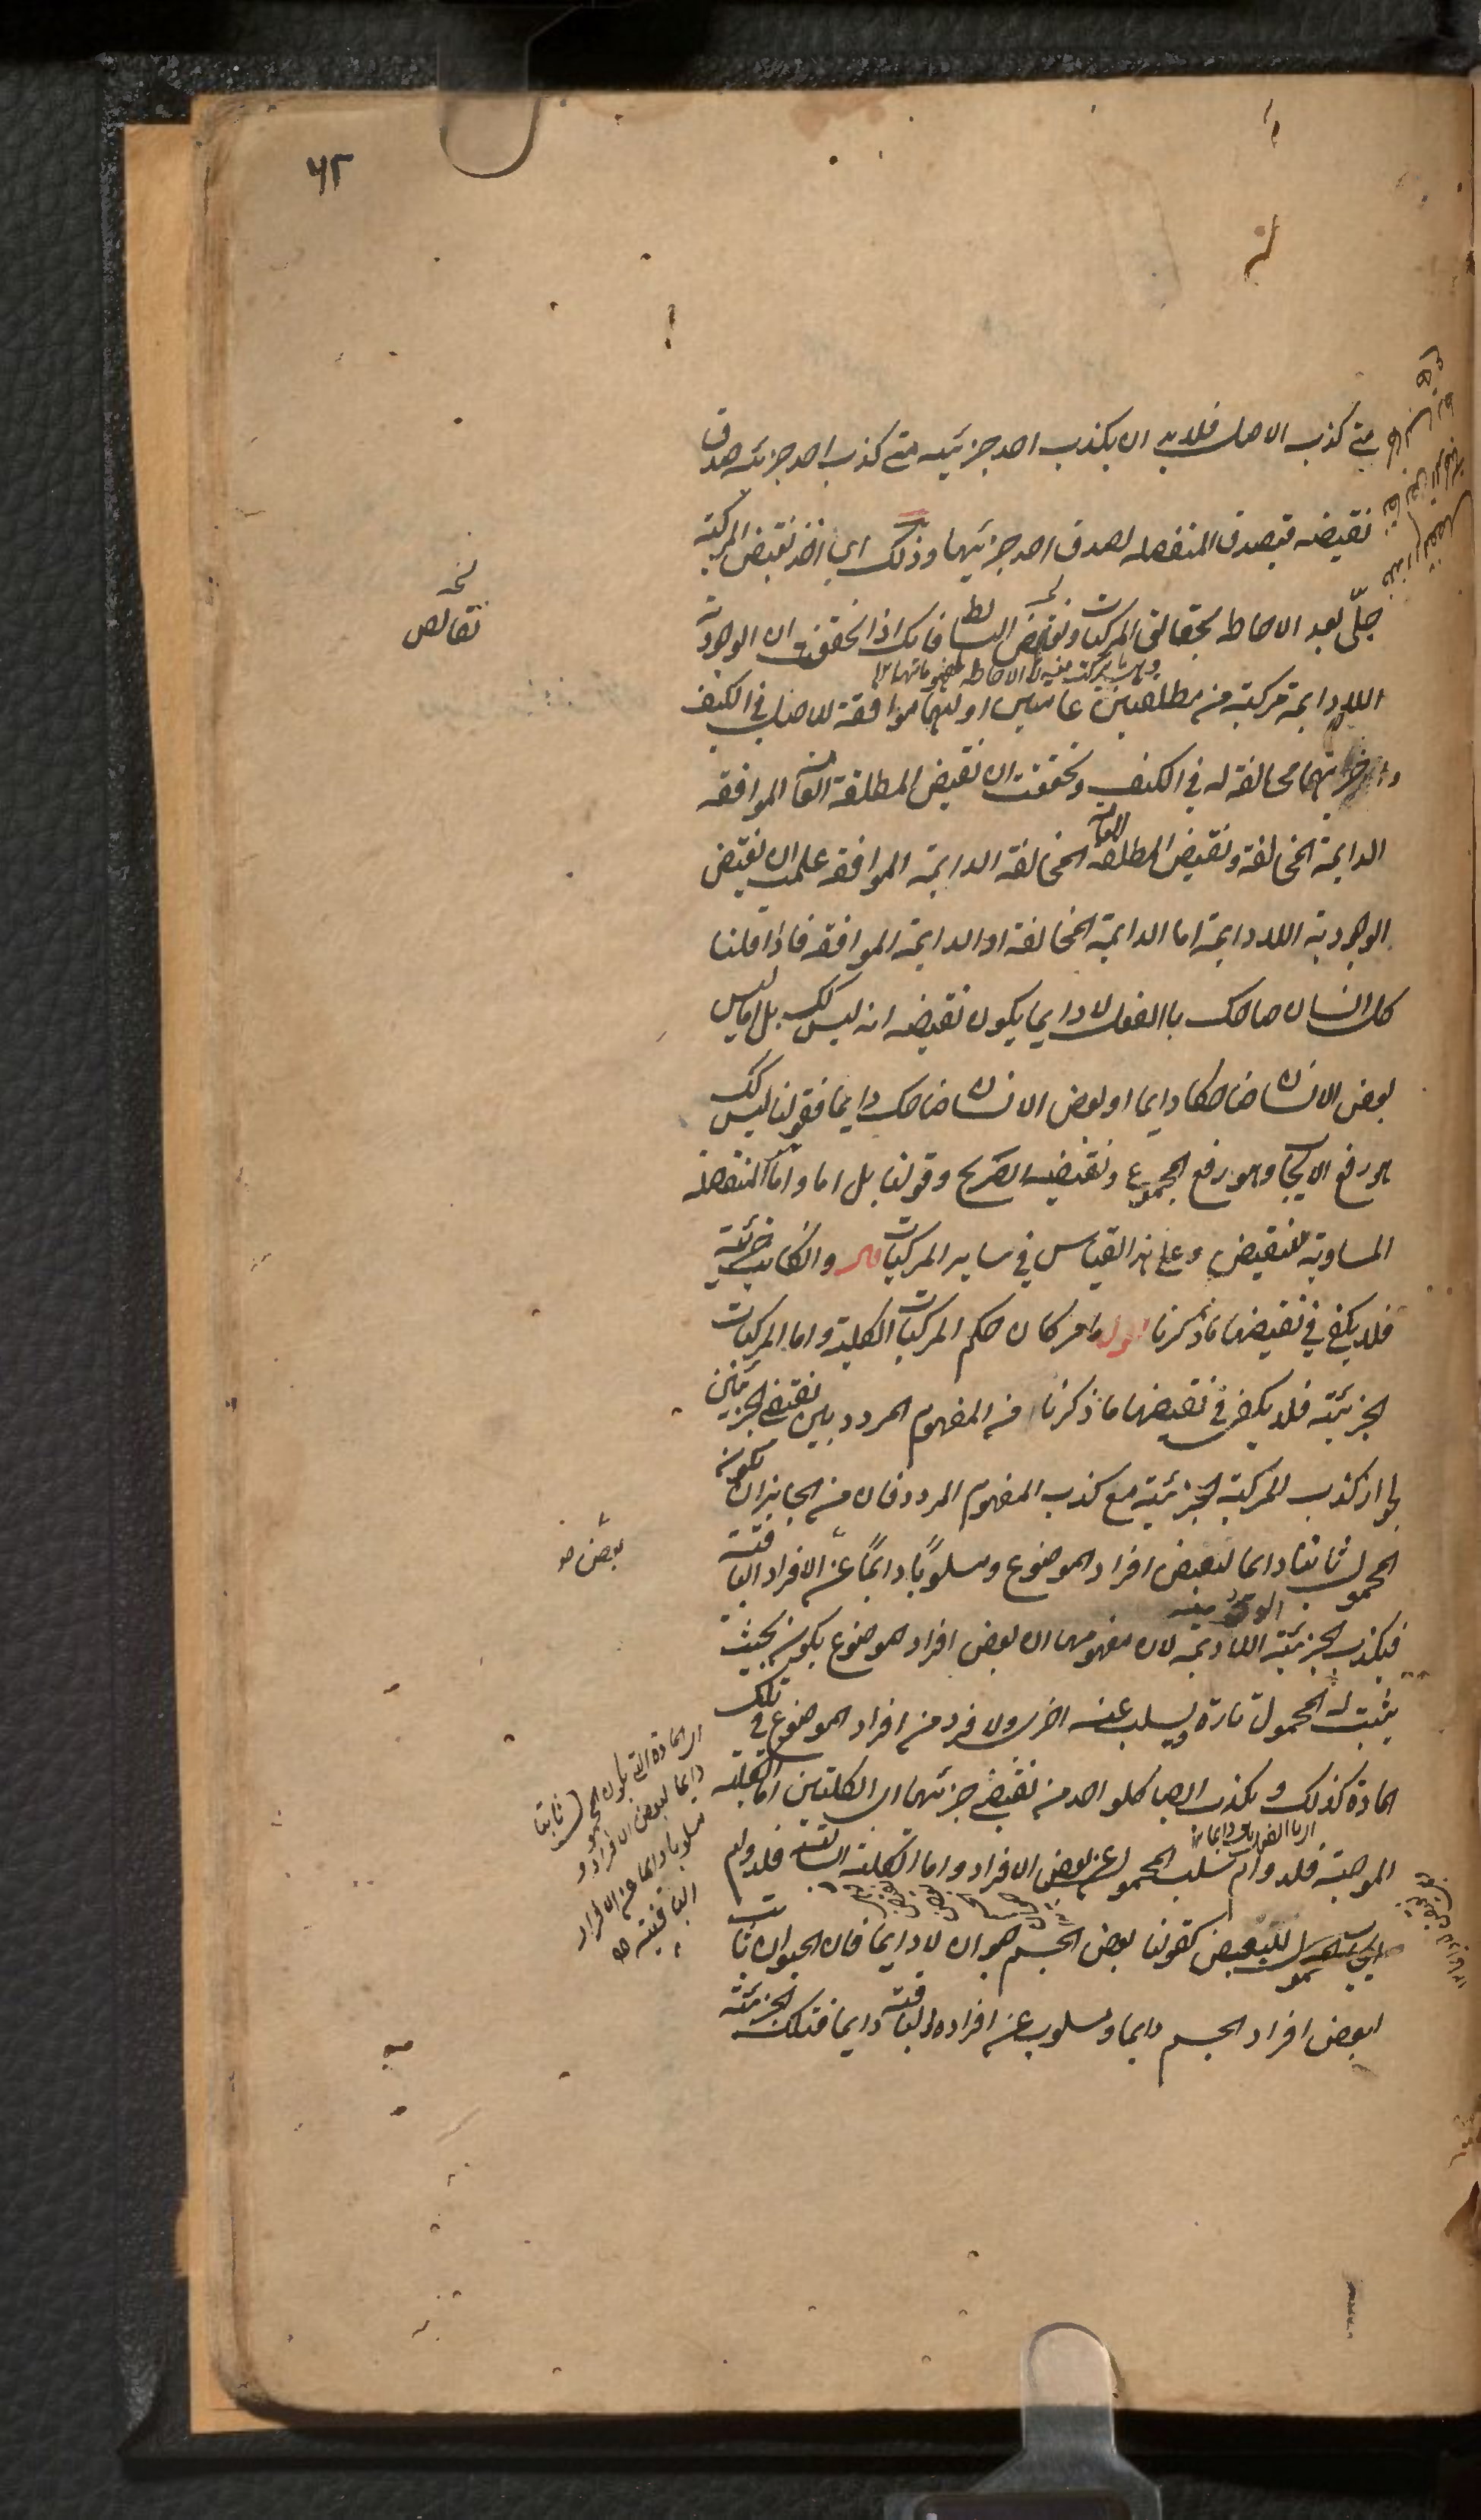 ٦٢
متى كذب الاصل فلا بد ان يكذب احد جزئيه متى كذب احد جزئيه صدق
نقيضه فيصدق المنفصله لصدق احد جزئيها وذلك اى اخذ نقيض المركبة
جلىّ بعد الاحاطه بحقائق المركبات ونقيض البسائط فانك اذا تحققت ان الوجودية
نقائص
اللادايمة مركبة من مطلقتين عامتين اوليهما موافقة للاصل فى الكيف
واخريهما مخالفة له فى الكيف وتحققت ان نقيض المطلقة العامة الموافقه
الدايمة المخالفة ونقيض المطلقه العامة المخالفة الدايمة الموافقه علمت ان نقيض
الوجودية اللادايمة اما الدايمة المخالفة او الدايمة الموافقه فاذا قلنا
كل انسان ضاحك باالفعل لا دايما يكون نقيضه انه ليس كك بل اما ليس
بعض الانسان ضاحكا دايما او بعض الانسان ضاحك دايما فقولنا ليس كك
هو رفع الايجاب وهو رفع المجموع ونقيضه الصريح وقولنا بل اما واما المنفصلة
المساوية للنقيض وعلى هذا القياس فى ساير المركبات قال وان كانت جزئية
فلا يكفى فى نقيضها ما ذكرنا اقول ما مر كان حكم المركبات الكلية واما المركبات
الجزئية فلا يكفى فى نقيضها ما ذكرنا من المفهوم المردد بين نقيضى الجزئين
لجواز كذب المركبة الجزئية مع كذب المفهوم المردد فان من الجايز ان يكون
المحمول ثابتا دايما لبعض افراد الموضوع ومسلوبًا دايمًا عن الافراد الباقية
بعض
فيكذب الجزئية اللادايمة لان مفهومها ان بعض افراد الموضوع يكون بحيث
يثبت له المحمول تارة ويسلب عنه اخرى ولا فرد من افراد الموضوع فى تلك
المادة كذلك ويكذب ايضا كلواحد من نقيضى جزئيها اى الكليتين اما الكلية
الموجبة فلدوام سلب المحمول عن بعض الافراد واما الكلية السالبة فلدوام
ايجاب المحمول للبعض كقولنا بعض الجسم حيوان لا دايما فان الحيوان ثابت
لبعض افراد الجسم دايما ومسلوب عن افراده الباقية دايما فتلك الجزئية
اى المادة التى يكون المحمول ثابتا
دايما لبعض الافراد و
مسلوبا دايما عن الافراد
الباقية